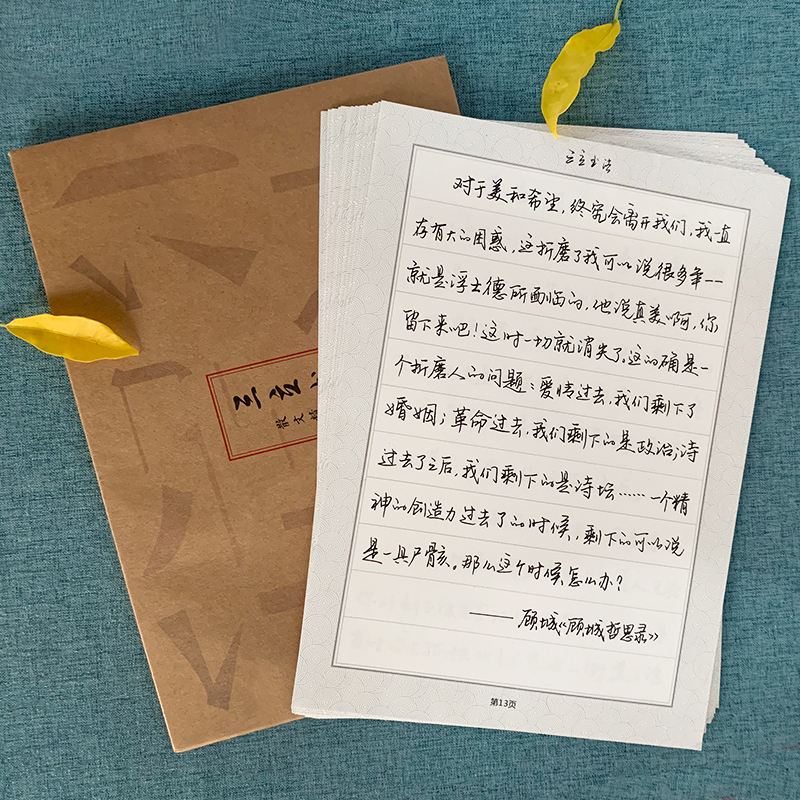 三言书法
对于美和希望，终究会离开我们，我一直
存有大的困惑，这折磨了我可以说很多年——
就是浮士德所面临的，他说真美啊，你
留下来吧！这时一切就消失了。这的确是一
个折磨人的问题：爱情过去，我们剩下了
婚姻；革命过去，我们剩下的是政治；诗
过去了之后，我们剩下的是诗坛……一个精
神的创造力过去了的时候，剩下的可以说
是一具尸骨亥。那么这个时候怎么办？
——顾城《顾城哲思录》
第13页
三言
散文